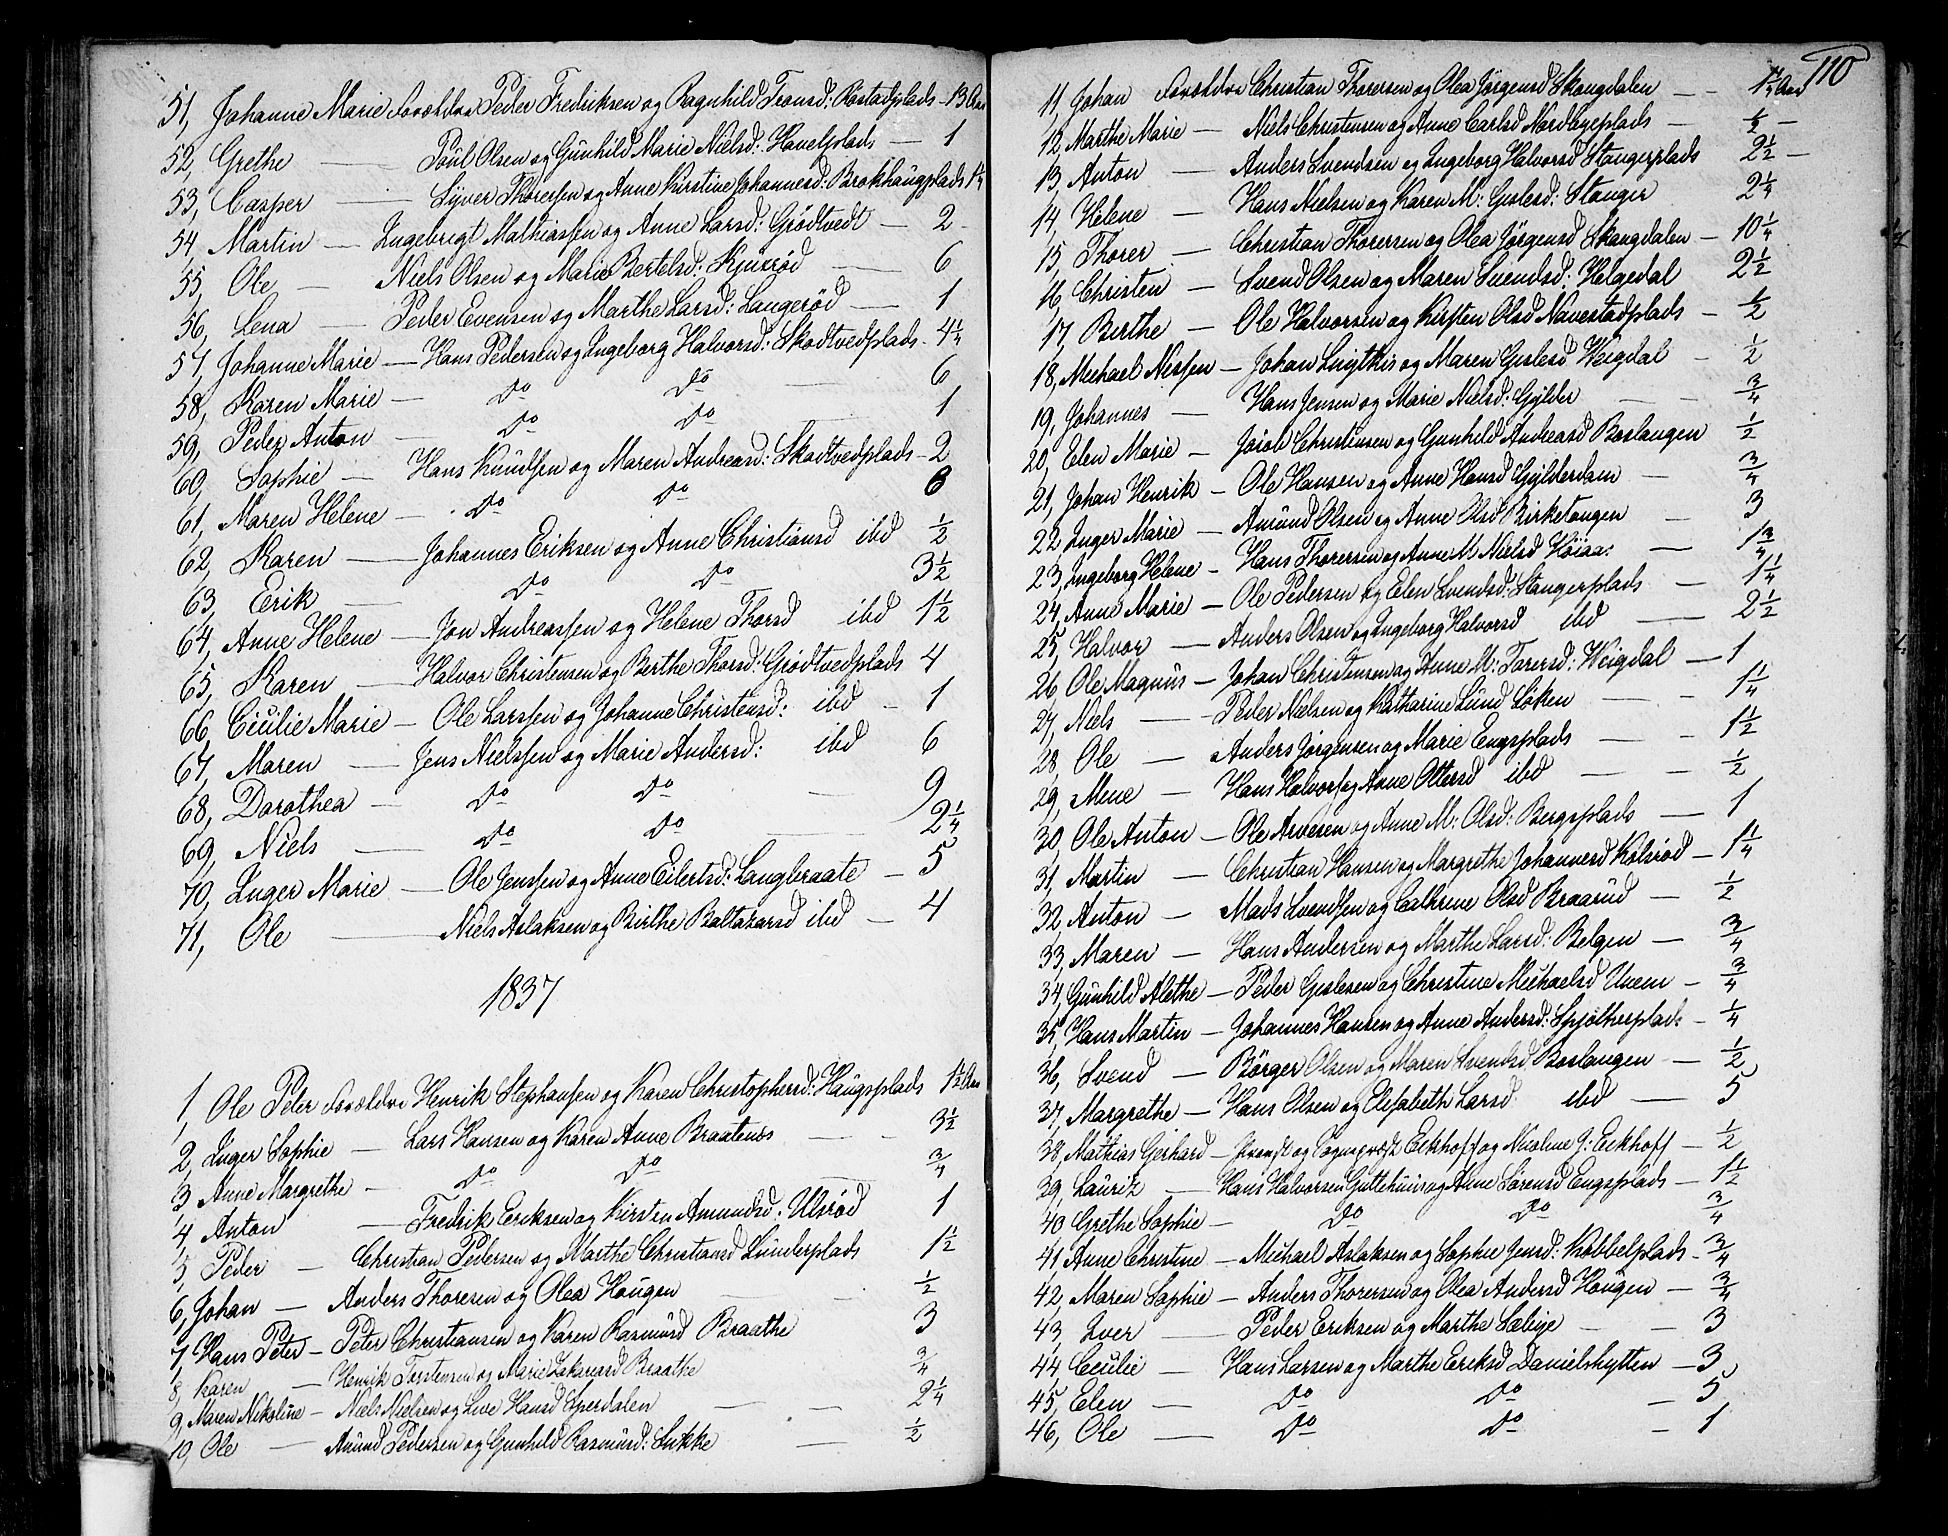 51, Johanne Marie Forældre Peder Fredriksen og Ragnhild Tronsd: Röstadplads - 13 Aar
52, Grethe — Poül Olsen og Günhild Marie Nielsd: Havelplads — 1
53, Casper — Lÿver Thoresen og Anne Kirstine Johannesd: Brokhaugplads 1 1/4
54, Martin — Ingebrigt Mathiassen og Anne Larsd: Grödtvedt — 2
55, Ole — Niels Olsen og Marie Bertelsd: Kjusröd — 6
56, Lena — Peder Evensen og Marthe Larsd: Langeröd — 1
57, Johanne Marie — Hans Pedersen og Ingeborg Halvorsd: Skodtvedplads - 4 1/4
58, Karen Marie — Do Do — 6
59, Peder Anton — Do Do 1
60, Sophie — Hans Knüdsen og Maren Andreasd: Skodtvedplads - 2
61, Maren Helene — Do Do 6
62, Karen — Johannes Eriksen og Anne Christiansd ibd 1/2
63, Erik — Do Do 3 1/2
64, Anne Helene — Jon Andreassen og Helene Thorsd ibd 1 1/2
65, Karen — Halvor Christensen og Berthe Thorsd: Grödtvedplads 4
66, Cicilie Marie — Ole Larssen og Johanne Christensd: ibd - 1
67, Maren — Jens Nielssen og Marie Andersd: ibd 6
68, Dorothea — Do Do — 9
69, Niels — Do Do — 2 1/4
70, Inger Marie — Ole Jenssen og Anne Eilertsd: Langbraate - 5
71, Ole — Niels Aslaksen og Birthe Baltazarsd ibd — 4
1837
1, Ole Peter Forældre Henrik Stephansen og Karen Christophersd: Haugsplads 1 1/2 Aar
2, Inger Sophie — Lars Hansen og Karen Anne Braatenes — 3 1/2
3 Anne Margrethe — Do Do — 3/4
4, Anton — Fredrik Eriksen og Kirsten Amundsd: Ulsröd 1
5, Peder — Christian Pedersen og Marthe Christiansd Lünderplads 1 1/2
6, Johan — Anders Thoresen og Olea Hougen — 1/2
7, Hans Peter — Peter Christiansen og Karen Rasmüsd Braathe 3
8, Karen — Henrik Torstensen og Marie Zakariasd Braathe 3/4
9, Maren Nikoline — Niels Nielsen og Live Hansd Sperdalen — 2 1/4
10, Ole — Amünd Pedersen og Gunhild Rasmüsd: Lükke — 1/2
110
11, Johan Forældre Christian Thorersen og Olea Jörgensd Skougdalen — 1 1/2 Aar
12 Marthe Marie — Niels Christensen og Anne Carlsd Nordbyeplads — 1/2 —
13, Anton — Anders Svendsen og Ingeborg Halvorsd Stangerplads 2 1/2 —
14, Helene — Hans Nielsen og Karen M: Gislesd: Stanger 2 1/4
15 Thorer — Christian Thorersen og Olea Jörgensd Skougdalen — 10 1/4
16, Christen — Svend Olsen og Maren Svendsd: Helgedal 2 1/2
17, Berthe — Ole Halvorsen og Kirsten Olsd Navestadplads — 1/2
18, Michael Nissen — Johan Lugthis og Maren Gislesd Weigdal — 1/2
19, Johannes — Hans Jensen og Marie Nielsd: Gylder — 3/4
20, Elen Marie — Jacob Christensen og Gunhild Andreasd Boslangen 1/2
21, Johan Henrik — Ole Hansen og Anne Hansd Gylderdam — 3/4
22 Inger Marie — Amünd Olsen og Anne Olsd Birketangen — 3
23, Ingeborg Helene — Hans Thorersen og Anne M Nielsd Höiaas — 1 3/4
24, Anne Marie — Ole Pedersen og Elen Svendsd: Stangerplads — 1 1/4
25, Halvor — Anders Olsen og Ingeborg Halvorsd ibd — 2 1/2
26 Ole Magnüs — Johan Christensen og Anne M: Torersd: Weigdal — 1
27, Niels — Peder Nielsen og Katharine Lünd Löken — 1 1/4
28, Ole — Anders Jörgensen og Marie Engsplads — 1 1/2
29, Mine — Hans Halvors og Anne Ottersd ibd — 1/2
30, Ole Anton — Ole Arvesen og Anne M: Olsd: Bergsplads — 1
31, Martin — Christian Hansen og Margrethe Johannesd Kölsröd — 1 1/4
32, Anton — Mads Svendsen og Cathrine Olsd Braarüd — 1/2
33, Maren — Hans Andersen og Marthe Larsd: Belgen — 3/4
34, Günhild Alethe — Peder Gislesen og Christine Michaelsd Unem — 3/4
35, Hans Martin — Johannes Hansen og Anne Andersd: Spjötherplads 1/4
36, Svend — Börger Olsen og Maren Svendsd Boslangen — 1/2
37, Margrethe — Hans Olsen og Elisabeth Larsd ibd — 5
38, Mathias Gerhard — Provst og Sognepræst Eckhoff og Nicoline J: Eckhoff — 1/2
39, Lauritz — Hans Halvorsen Guttehuin og Anne Sörensd Engsplads — 1 1/2
40 Grethe Sophie — Do Do 3/4
41 Anne Christine — Michael Aslaksen og Sophie Jensd: Kobbelplads - 3/4
42, Maren Sophie — Anders Thorersen og Olea Andersd Hougen — 3/4
43, Iver — Peder Eriksen og Marthe Sæbye — 3
44 Cecilie — Hans Larsen og Marthe Eriksd Danielshytten — 3
45, Elen — Do Do — 5
46, Ole — Do Do — 1